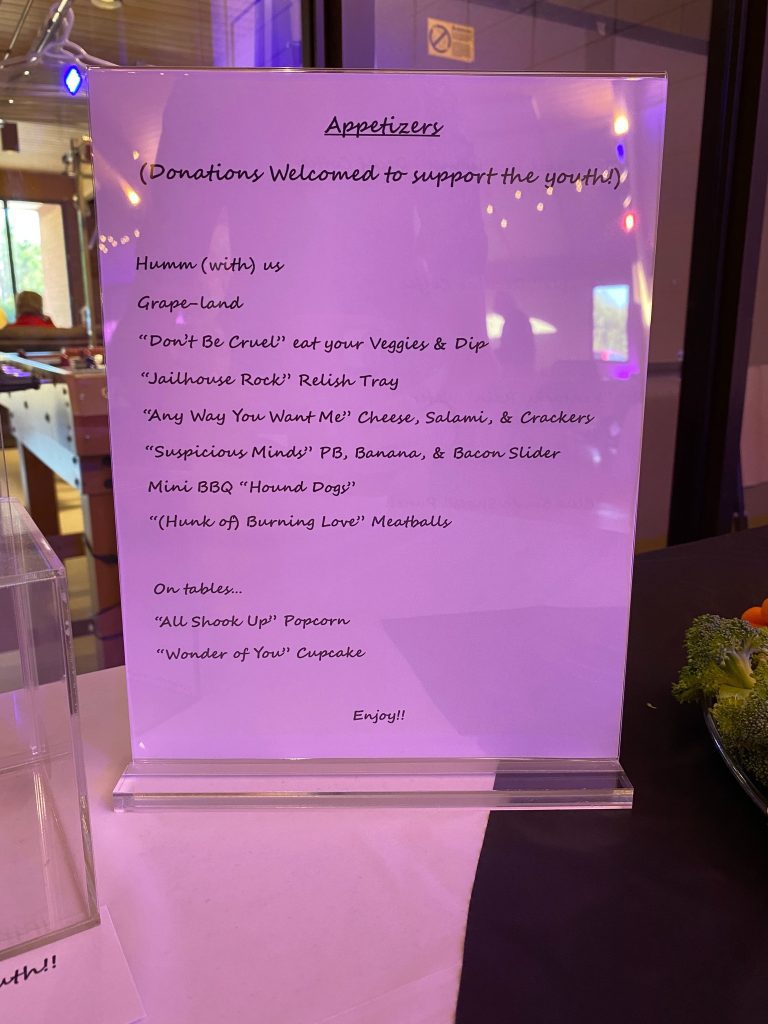 Appetizers
(Donations Welcomed to support the youth!)
Humm (with) us
Grape-land
“Don’t Be Cruel” eat your Veggies & Dip
“Jailhouse Rock” Relish Tray
“Any Way You Want Me” Cheese, Salami, & Crackers
“Suspicious Minds” PB, Banana, & Bacon Slider
Mini BBQ “Hound Dogs”
“(Hunk of) Burning Love” Meatballs
On tables...
“All Shook Up” Popcorn
“Wonder of You” Cupcake
Enjoy!!